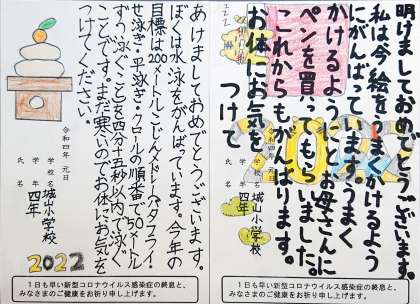 明けましておめでとうございます。
私は今絵をうまくかけるよう
にがんばっています。うまく
かけるようにとお母さんに
ペンを買ってもらいました。
これからもがんばります。
お体にお気を
つけて
令和四年 元日
学校名 城山小学校
学年 四年
氏名
1日も早い新型コロナウイルス感染症の終息と、
みなさまのご健康をお祈り申し上げます。
あけましておめでとうございます。
ぼくは水泳をがんばっています。今年の
目標は200メートルこじんメドレー(バタフライ・
せ泳ぎ・平泳ぎ・クロールの順番で50メートル
ずつ泳ぐこと)を四分十五秒以内で泳ぐ
ことです。まだ寒いのでお体にお気を
つけてください。
令和四年 元日
学校名 城山小学校
学年 四年
氏名
2022
1日も早い新型コロナウイルス感染症の終息と、
みなさまのご健康をお祈り申し上げます。